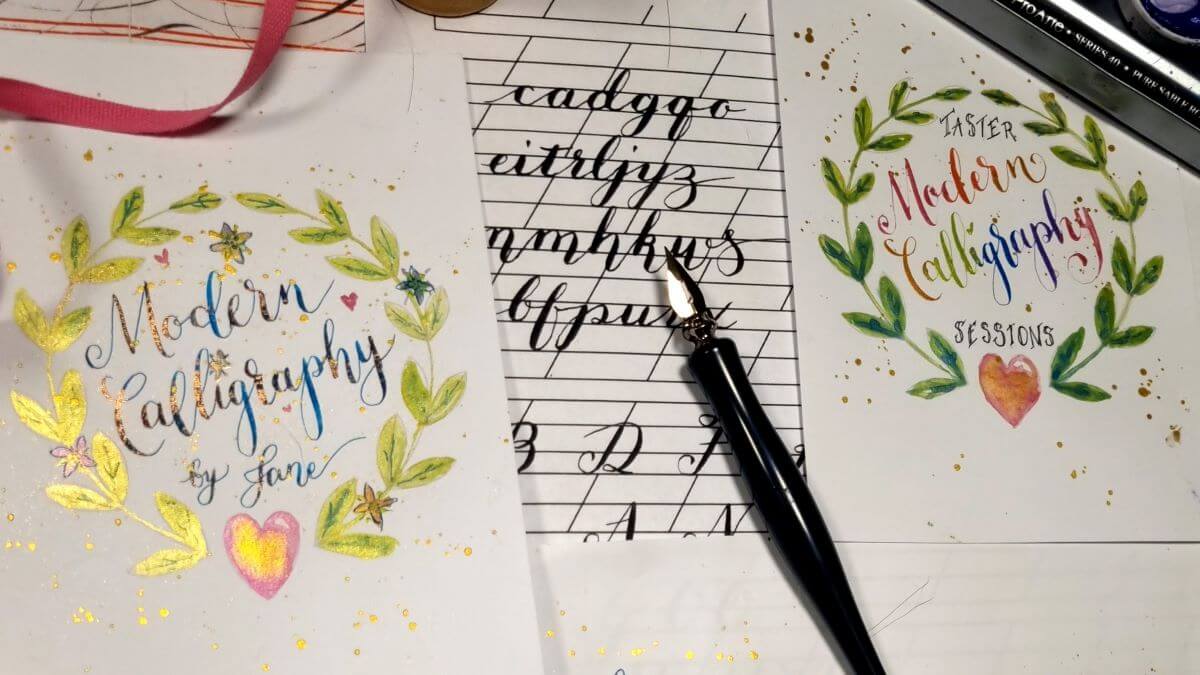 Modern
Calligraphy
by Jane
cadgqo
eitrljyz
nmhkuws
bfpu
B D
A N
TASTER
Modern
Calligraphy
SESSIONS
ProArte • SERIES 40 • PURE SABLE